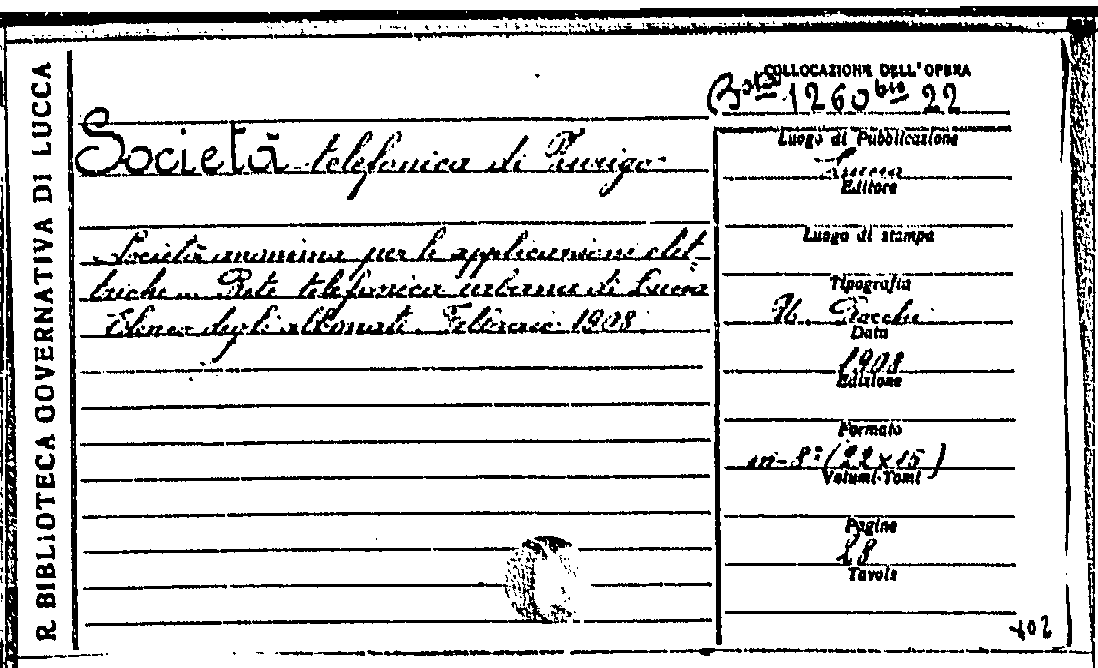 R BIBLIOTECA GOVERNATIVA DI LUCCA
COLLOCAZIONE DELL'OPERA
Bta 1260 bis 22
Società telefonica di Zurigo.
Società anonima per le applicazioni elet-
triche. Rete telefonica urbana di Lucca
Elenco degli abbonati. Febbraio 1908.
Luogo di Pubblicazione
Lucca
Editore
Luogo di stampa
Tipografia
U. Pacchi
Data
1908
Edizione
Formato
in-8º (22x15)
Volumi-Tomi
Pagine
28
Tavole
102